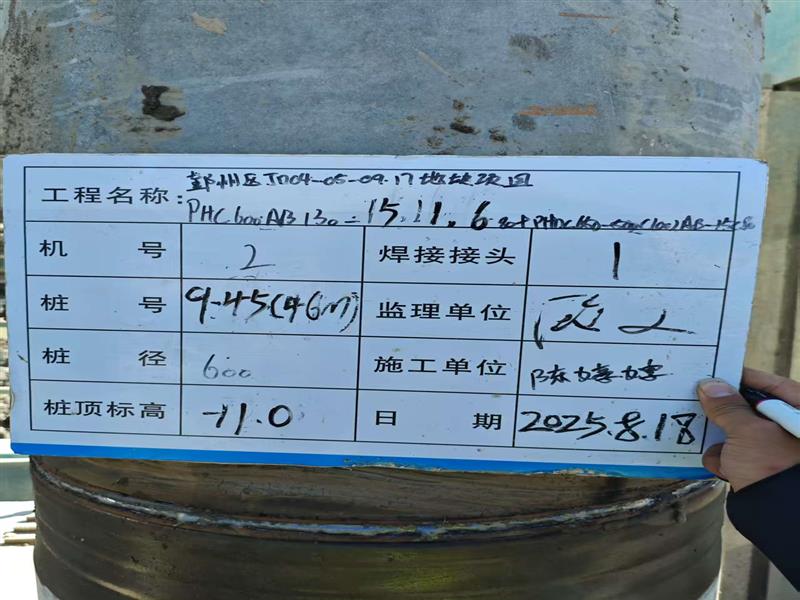 工程名称: 鄞州区JD04-05-09.17地块项目
PHC 600 AB 130-15.11.6
机号 2 焊接接头 1
桩号 9-45(46m) 监理单位
桩径 600 施工单位 陈婷婷
桩顶标高 -11.0 日期 2025.8.18